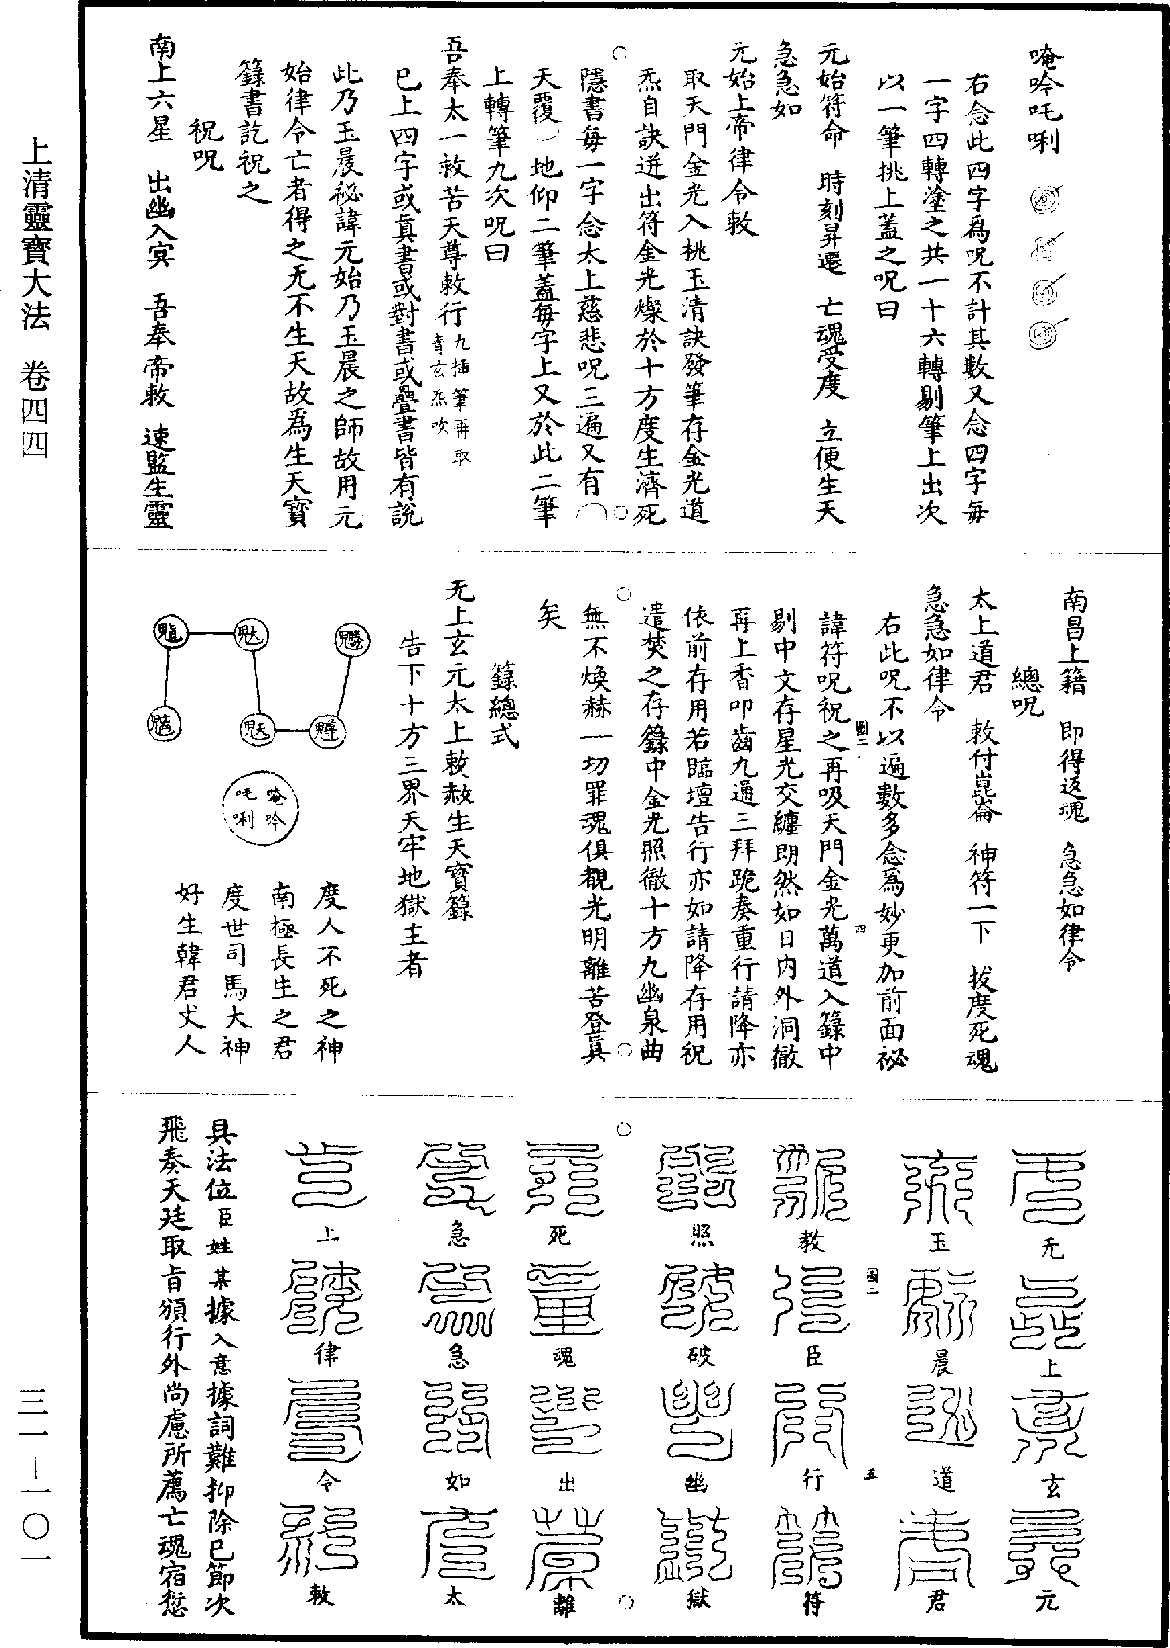 唵吽吒唎
右念此四字爲呪不計其數又念四字每
一字四轉塗之共一十六轉剔筆上出次
以一筆挑上蓋之呪曰
元始符命　時刻昇遷　亡魂受度　立便生天
急急如
元始上帝律令敕
取天門金光入挑玉清訣發筆存金光道
炁自訣迸出符金光燦於十方度生濟死
隱書每一字念太上慈悲呪三遍又有
天覆地仰二筆蓋每字上又於此二筆
上轉筆九次呪曰
吾奉太一救苦天尊敕行九插筆再取青玄炁吹
已上四字或眞書或對書或疊書皆有說
此乃玉晨祕諱元始乃玉晨之師故用元
始律令亡者得之无不生天故爲生天寶
籙書訖祝之
祝呪
南上六星　出幽入冥　吾奉帝敕　速監生靈
南昌上籍　即得返魂　急急如律令
總呪
太上道君　敕付崑崙　神符一下　拔度死魂
急急如律令
右此呪不以遍數多念爲妙更加前面祕
諱符呪祝之再吸天門金光萬道入籙中
剔中文存星光交纏朗然如日內外洞徹
再上香叩齒九通三拜跪奏重行請降亦
依前存用若臨壇告行亦如請降存用祝
遣焚之存籙中金光照徹十方九幽泉曲
無不煥赫一切罪魂俱覩光明離苦登眞
矣
籙總式
无上玄元太上敕赦生天寶籙
告下十方三界天牢地獄主者
唵吽吒唎
度人不死之神
南極長生之君
度世司馬大神
好生韓君丈人
无上玄元
玉晨道君
敕臣行符
照破幽獄
死魂出離
急急如太
上律令敕
具法位臣姓某據入意據詞難抑除已節次
飛奏天廷取旨頒行外尚慮所薦亡魂宿愆
上清靈寶大法　卷四四
三一－一〇一